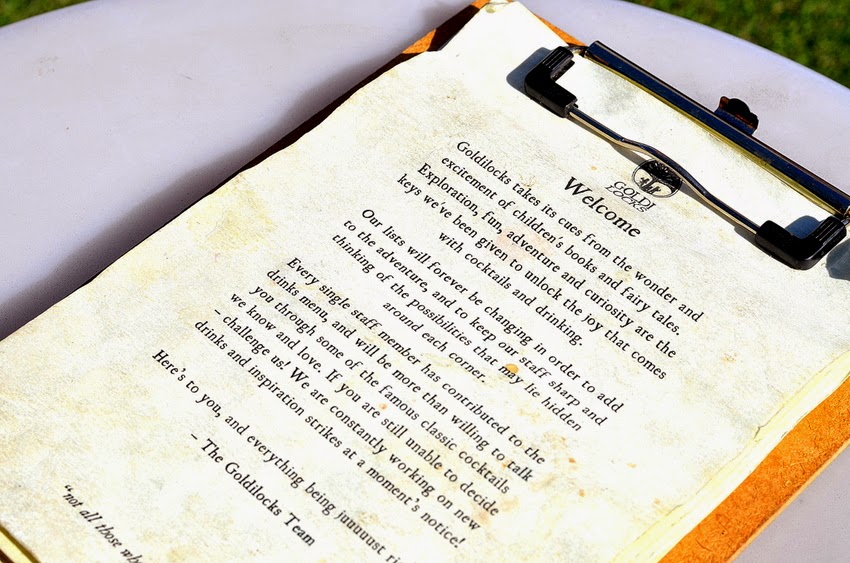 GOLDI
LOCKS
Welcome
Goldilocks takes its cues from the wonder and
excitement of children's books and fairy tales.
Exploration, fun, adventure and curiosity are the
keys we've been given to unlock the joy that comes
with cocktails and drinking.
Our lists will forever be changing in order to add
to the adventure, and to keep our staff sharp and
thinking of the possibilities that may lie hidden
around each corner.
Every single staff member has contributed to the
drinks menu, and will be more than willing to talk
you through some of the famous classic cocktails
we know and love. If you are still unable to decide
– challenge us! We are constantly working on new
drinks and inspiration strikes at a moment's notice!
Here's to you, and everything being juuuuust ri
– The Goldilocks Team
"not all those wh